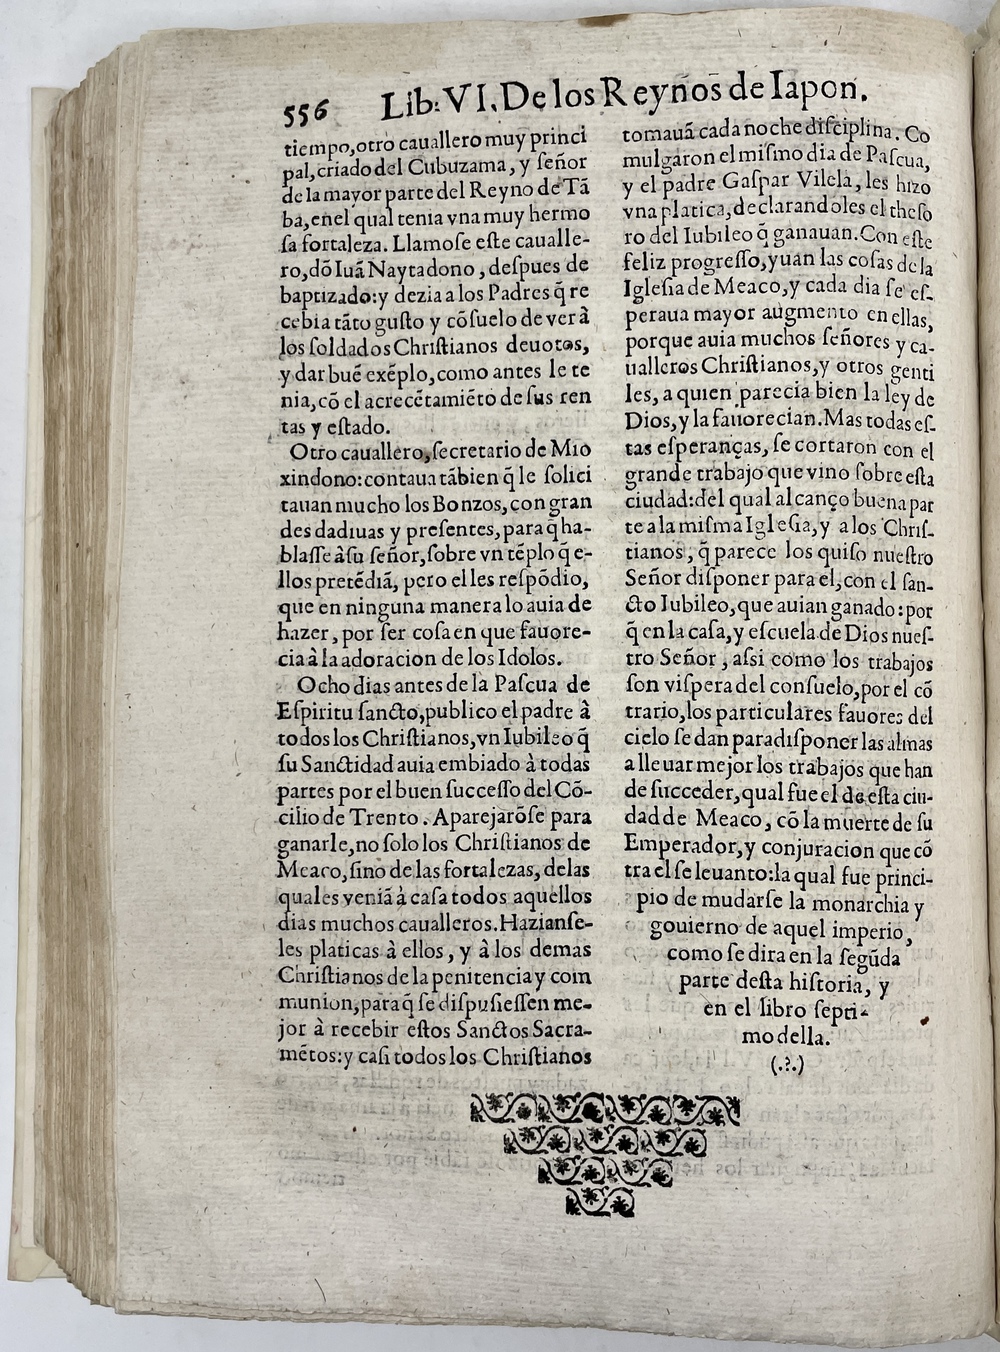 556 Lib. VI. De los Reynos de Iapon.
tiempo, otro cauallero muy princi
pal, criado del Cubuzama, y señor
de la mayor parte del Reyno de Tã
ba, en el qual tenia vna muy hermo
sa fortaleza. Llamose este caualle-
ro, dõ Iuã Naytadono, despues de
baptizado: y dezia a los Padres q̃ re
cebia tãto gusto y cõsuelo de ver â
los soldados Christianos deuotos,
y dar buẽ exẽplo, como antes le te
nia, cõ el acrecẽtamiẽto de sus ren
tas y estado.
Otro cauallero, secretario de Mio
xindono: contaua tãbien q̃ le solici
tauan mucho los Bonzos, con gran
des dadiuas y presentes, para q̃ ha-
blasse â su señor, sobre vn tẽplo q̃ e-
llos pretẽdiã, pero el les respõdio,
que en ninguna manera lo auia de
hazer, por ser cosa en que fauore-
cia â la adoracion de los Idolos.
Ocho dias antes de la Pascua de
Espiritu sancto, publico el padre â
todos los Christianos, vn Iubileo q̃
su Sanctidad auia embiado à todas
partes por el buen successo del Cõ-
cilio de Trento. Aparejarõse para
ganarle, no solo los Christianos de
Meaco, sino de las fortalezas, delas
quales veniã à casa todos aquellos
dias muchos caualleros. Hazianse-
les platicas à ellos, y à los demas
Christianos de la penitencia y com
munion, para q̃ se dispusiessen me-
jor à recebir estos Sanctos Sacra-
mẽtos: y casi todos los Christianos
tomauã cada noche disciplina. Co
mulgaron el mismo dia de Pascua,
y el padre Gaspar Vilela, les hizo
vna platica, declarandoles el theso
ro del Iubileo q̃ ganauan. Con este
feliz progresso, yuan las cosas de la
Iglesia de Meaco, y cada dia se es-
peraua mayor augmento en ellas,
porque auia muchos señores y ca-
ualleros Christianos, y otros genti
les, a quien parecia bien la ley de
Dios, y la fauorecian. Mas todas es-
tas esperanças, se cortaron con el
grande trabajo que vino sobre esta
ciudad: del qual alcanço buena par
te a la misma Iglesia, y a los Chris-
tianos, q̃ parece los quiso nuestro
Señor disponer para el, con el san-
cto Iubileo, que auian ganado: por
q̃ en la casa, y escuela de Dios nues-
tro Señor, assi como los trabajos
son vispera del consuelo, por el cõ
trario, los particulares fauores del
cielo se dan para disponer las almas
a lleuar mejor los trabajos que han
de succeder, qual fue el de esta ciu-
dad de Meaco, cõ la muerte de su
Emperador, y conjuracion que cõ
tra el se leuanto: la qual fue princi-
pio de mudarse la monarchia y
gouierno de aquel imperio,
como se dira en la segũda
parte desta historia, y
en el libro septi-
mo della.
(.?.)